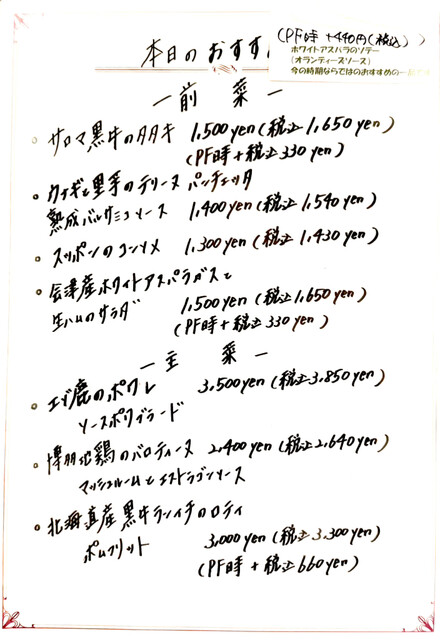 (PF時 +440円(税込))
ホワイトアスパラのソテー
(オランディーズソース)
今の時期ならではのおすすめの一
本日のおすす
ー前 菜ー
サロマ黒牛のタタキ 1,500yen(税込1,650yen)
(PF時+税込330yen)
ウナギと里芋のテリーヌ パンチェッタ
熟成バルサミコソース 1,400yen(税込1,540yen)
スッポンのコンソメ 1,300yen(税込1,430yen)
会津産ホワイトアスパラガスと
生ハムのサラダ 1,500yen(税込1,650yen)
(PF時+税込330yen)
ー主 菜ー
エゾ鹿のポワレ 3,500yen(税込3,850yen)
ソースポワブラード
博多地鶏のバロティーヌ 2,400yen(税込2,640yen)
マッシュルームとエストラゴンソース
北海道産黒牛ランイチのロティ
ポムフリット 3,000yen(税込3,300yen)
(PF時+税込660yen)